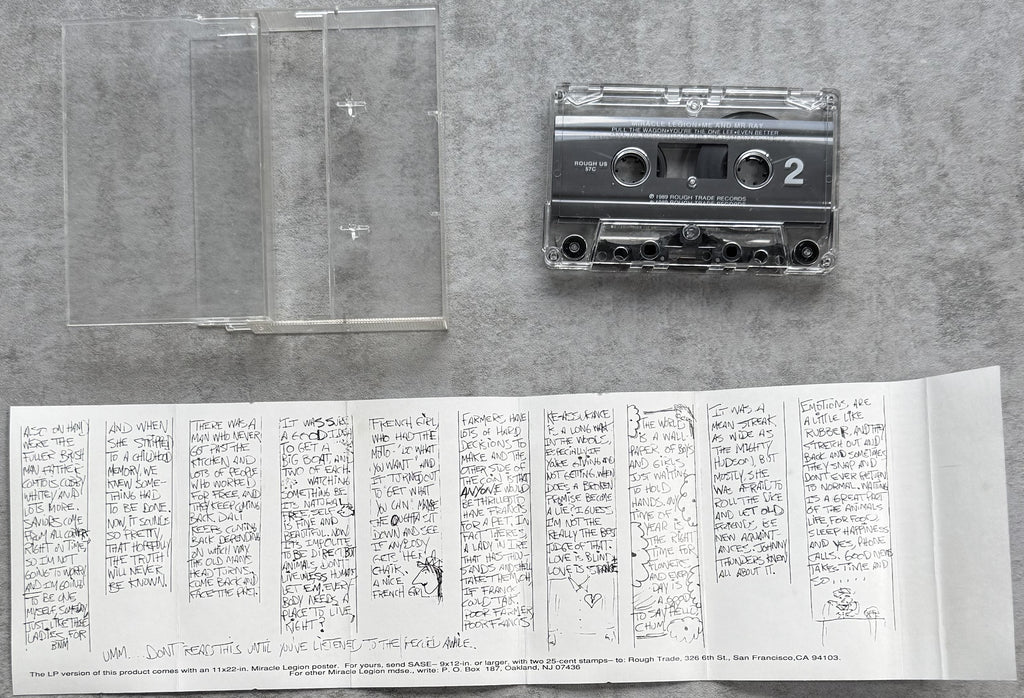 MIRACLE LEGION•ME AND MR RAY
PULL THE WAGON•YOU'RE THE ONE LEE•EVEN BETTER
ROUGH US
57C
2
℗ 1989 ROUGH TRADE RECORDS
© 1989 ROUGH TRADE RECORDS
ALSO ON HAND
WERE THE
FULLER BRUSH
MAN FATHER
WHITEY AND
LOTS MORE.
SAVIORS COME
FROM ALL CORNERS
RIGHT ON TIME
SO I'M NOT
GOING TO WORRY
AND I'M GOING
TO BE ONE
MYSELF, SOMEDAY
JUST LIKE THOSE
LADIES, FOR
AND WHEN
SHE STRIPPED
TO A CHILDHOOD
MEMORY, WE
KNEW SOME-
THING HAD
TO BE DONE.
NOW, IT SOUNDS
SO PRETTY
THAT HOPEFULLY
THE TRUTH
WILL NEVER
BE KNOWN.
THERE WAS A
MAN WHO NEVER
GOT PAST THE
KITCHEN AND
LOTS OF PEOPLE
WHO WORKED
FOR FREE, AND
THEY KEEP COMING
BACK. DALI
KEEPS COMING
BACK DEPENDING
ON WHICH WAY
THE OLD MAN'S
HEAD TURNS.
COME BACK AND
FACE THE
IT WAS SURE
A GOOD IDEA
TO GET A
BIG BOAT AND
TWO OF EACH.
WATCHING
SOMETHING BE
IT'S NATURAL
FREE SELF
IS FINE AND
BEAUTIFUL. NOW
IT'S IMPOLITE
TO BE DIRECT, BUT
ANIMALS DON'T
LIVE IN LESS HUMANS
LET EM. EVERY
BODY NEEDS A
PLACE TO LIVE
RIGHT?
FRENCH GIRL,
WHO HAD THE
MOTTO - "DO WHAT
YOU WANT" AND
IT TURNED OUT
TO "GET WHAT
YOU CAN". MABE
SHE OUGHTA SIT
DOWN AND SEE
IF ANYBODY
GETS HER
CHAIR.
A NICE
FRENCH GIRL
FARMERS HAVE
LOTS OF HARD
DECISIONS TO
MAKE AND THE
OTHER SIDE OF
THE COIN IS THAT
ANYONE WOULD
BE THRILLED TO
HAVE FRANCIS
FOR A PET. IN
FACT THERE'S
A LADY IN
THAT HAS THOU
SANDS AND SHE'LL
TAKE THEM, OH
IF FRANCIS
COULD TALK.
POOR FARMER
POOR FRANCIS
REASSURANCE
IS A LONG WAY
IN THE WOODS,
ESPECIALLY IF
YOU'RE GIVING AND
NOT GETTING. WHEN
DOES A BROKEN
PROMISE BECOME
A LIE? I GUESS
I'M NOT THE
REALLY THE BEST
JUDGE OF THAT.
LOVE IS BLIND
LOVE IS STRANGE
THE WORLD
IS A WALL-
PAPER OF BOYS
AND GIRLS
JUST WAITING
TO HOLD
HANDS. ANY
TIME OF
YEAR IS
THE RIGHT
TIME FOR
FLOWERS
AND EVERY
DAY IS
A GOOD
TO SAY HELLO
CHUM
IT WAS A
MEAN STREAK
AS WIDE AS
THE MIGHTY
HUDSON, BUT
MOSTLY, SHE
WAS AFRAID TO
ROLL THE DICE
AND LET OLD
FRIENDS BE
NEW AQUAINT
ANCES. JOHNNY
THUNDERS KNEW
ALL ABOUT IT.
EMOTIONS, ARE
A LITTLE LIKE
RUBBER, AND THEY
STRETCH OUT AND
BACK AND SOMETIMES
THEY SNAP AND
DON'T EVER RETURN
TO NORMAL. WAITING
IS A GREAT PART
OF THE ANIMALS
LIFE, FOR FOOD,
SLEEP HAPPINESS
AND YES, PHONE
CALLS. GOOD NEWS
TAKES TIME AND
SO .....
UMM... DON'T READ THIS UNTIL YOU'VE LISTENED TO THE RECORD AWHILE...
The LP version of this product comes with an 11x22-in. Miracle Legion poster. For yours, send SASE– 9x12-in. or larger, with two 25-cent stamps– to: Rough Trade, 326 6th St., San Francisco, CA 94103.
For other Miracle Legion mdse., write: P. O. Box 187, Oakland, NJ 07436